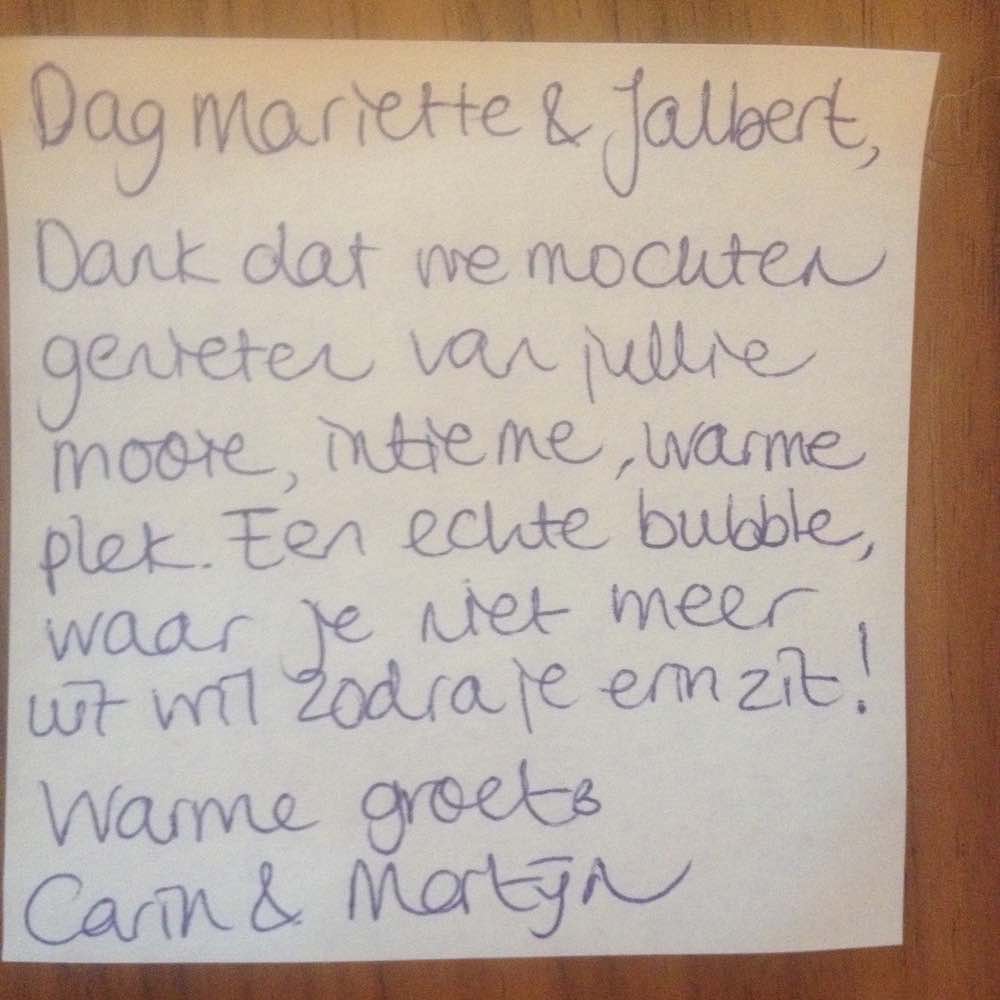 Dag Mariette & Jalbert,
Dank dat we mochten
genieten van jullie
mooie, intieme, warme
plek. Een echte bubble,
waar je niet meer
uit wil zodra je erin zit!
Warme groets
Carin & Martijn